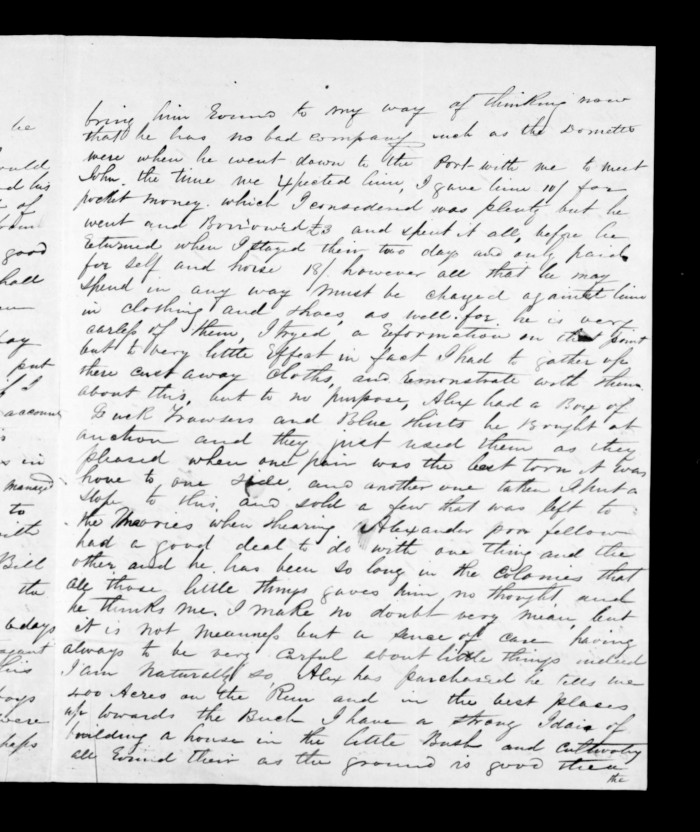 be
ould
d his
of
good
hall
ay
put
if I
account
is
in
managed
to
with
Bell
the
adays
his
boys
were
bring him Round to my way of thinking now
that he has no bad company such as the
were when he went down to the Port with me to meet
John the time we Xpected him, I gave him 10/ for
pocket money. which I considered was plenty but he
went and Borrowed £3 and spent it all, before he
Returned when I stayed their two days and only paid
for self and horse 18/ however all that he may
spend in any way must be charged against him
in clothing and shoes, as well. for he is very
carless of them, I tryed a Reformation on that point
but to very little Effect in fact I had to gather up
there cust away cloths, and Remonstrate with them
about this, but to no purpose, Alex had a Box of
Duck Trowsers and Blue shirts he Bought at
auction and they just used them as they
pleased when one pair was the least torn it was
hove to one side, and another one taken I put a
stope to this, and sold a few that was left to
the Maories when shearing. Alexander poor fellow
had a good deal to do with one thing and the
other and he has been so long in the Colonies that
all those little things gaves him no thought and
he thinks me. I make no doubt very mean, but
it is not meanness but a sense of care, having
always to be very carful about little things indeed
I am naturally so, Alex has purchased he tells me
400 Acres on the Run and in the best places
up towards the Buch I have a strong Idair of
building a house in the little Bush and cultivating
all Round their as the ground is good
the